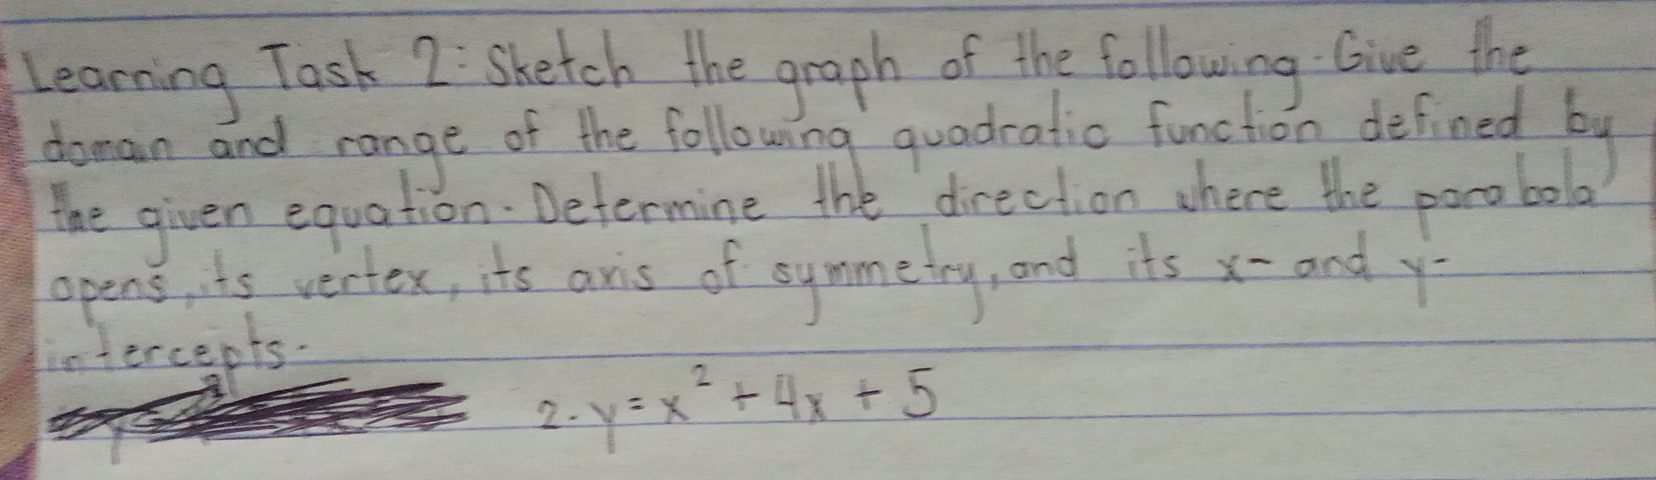 Learning Task 2: Sketch the graph of the following. Give the
doman and range of the following quadratic function defined by
the given equation. Determine the direction where the parabola
opens, its vertex, its axis of symmetry, and its x- and y-
intercepts.
2. y = x² + 4x + 5